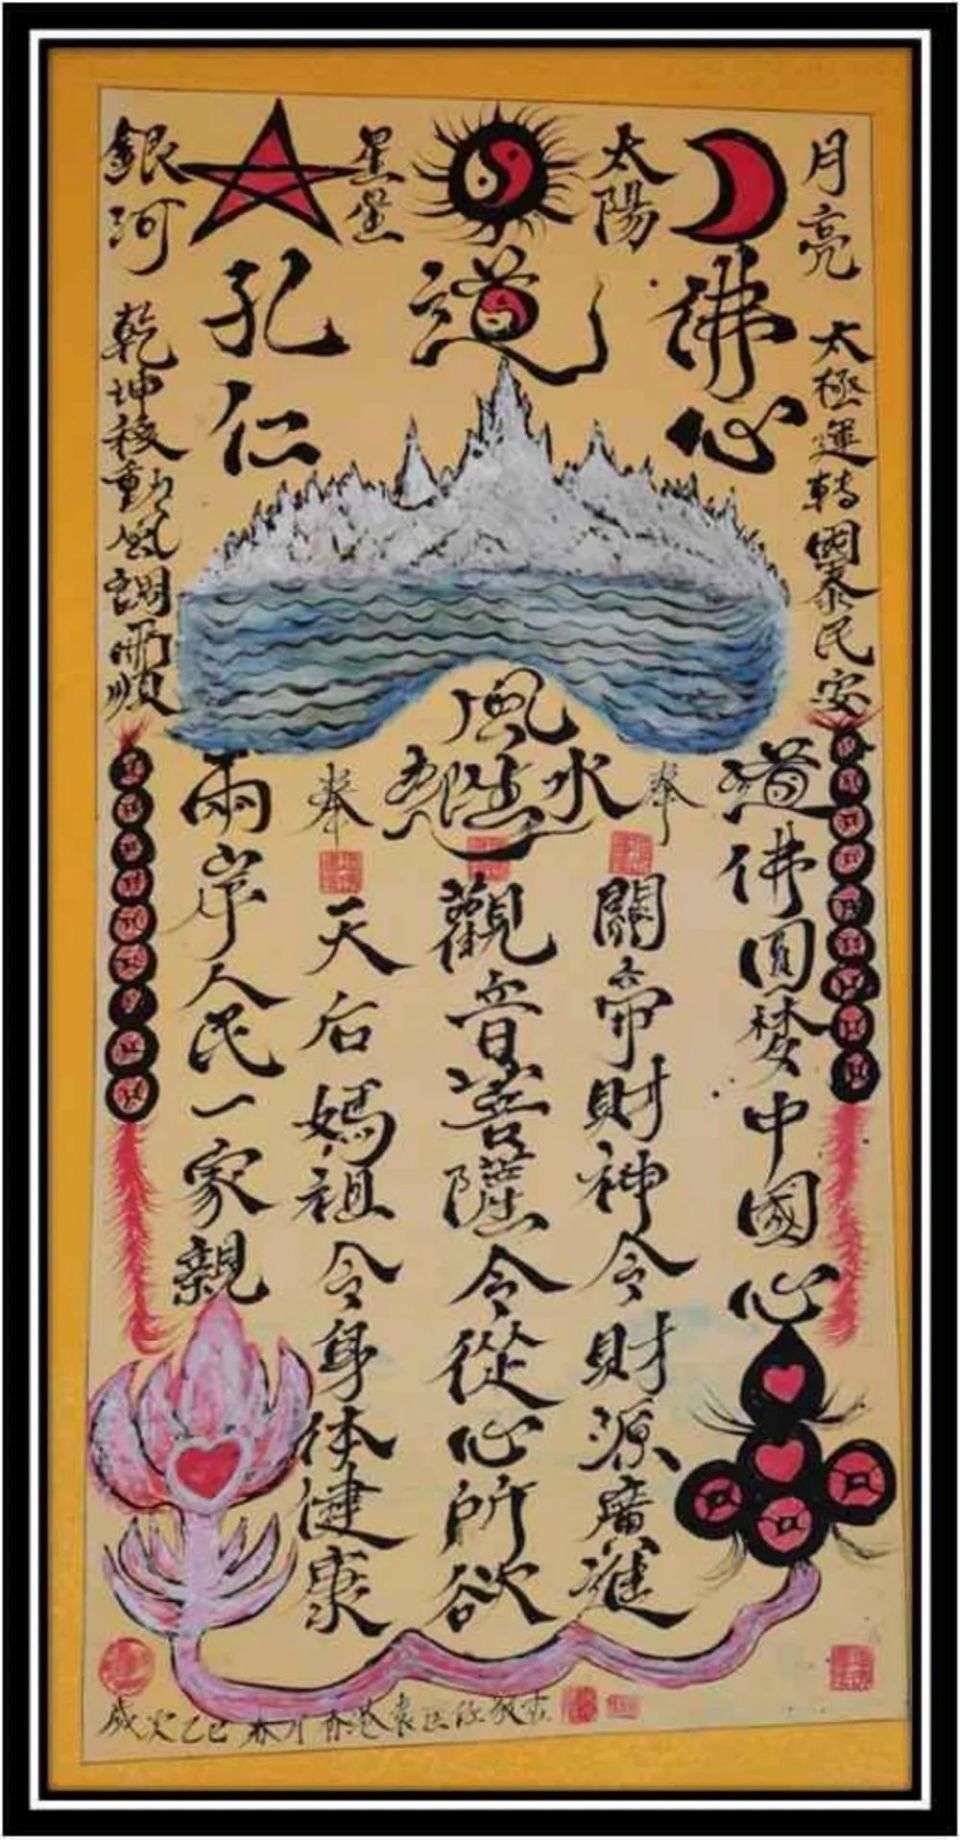 月亮
太陽
星星
銀河
佛心
道
孔仁
太極運轉國泰民安
乾坤移動風調雨順
風
水
道佛圓梦中國心
奉
關帝財神令財源廣進
觀音菩薩令從心所欲
奉
天后媽祖令身体健康
兩岸人民一家親
歲次乙巳春月香港袁